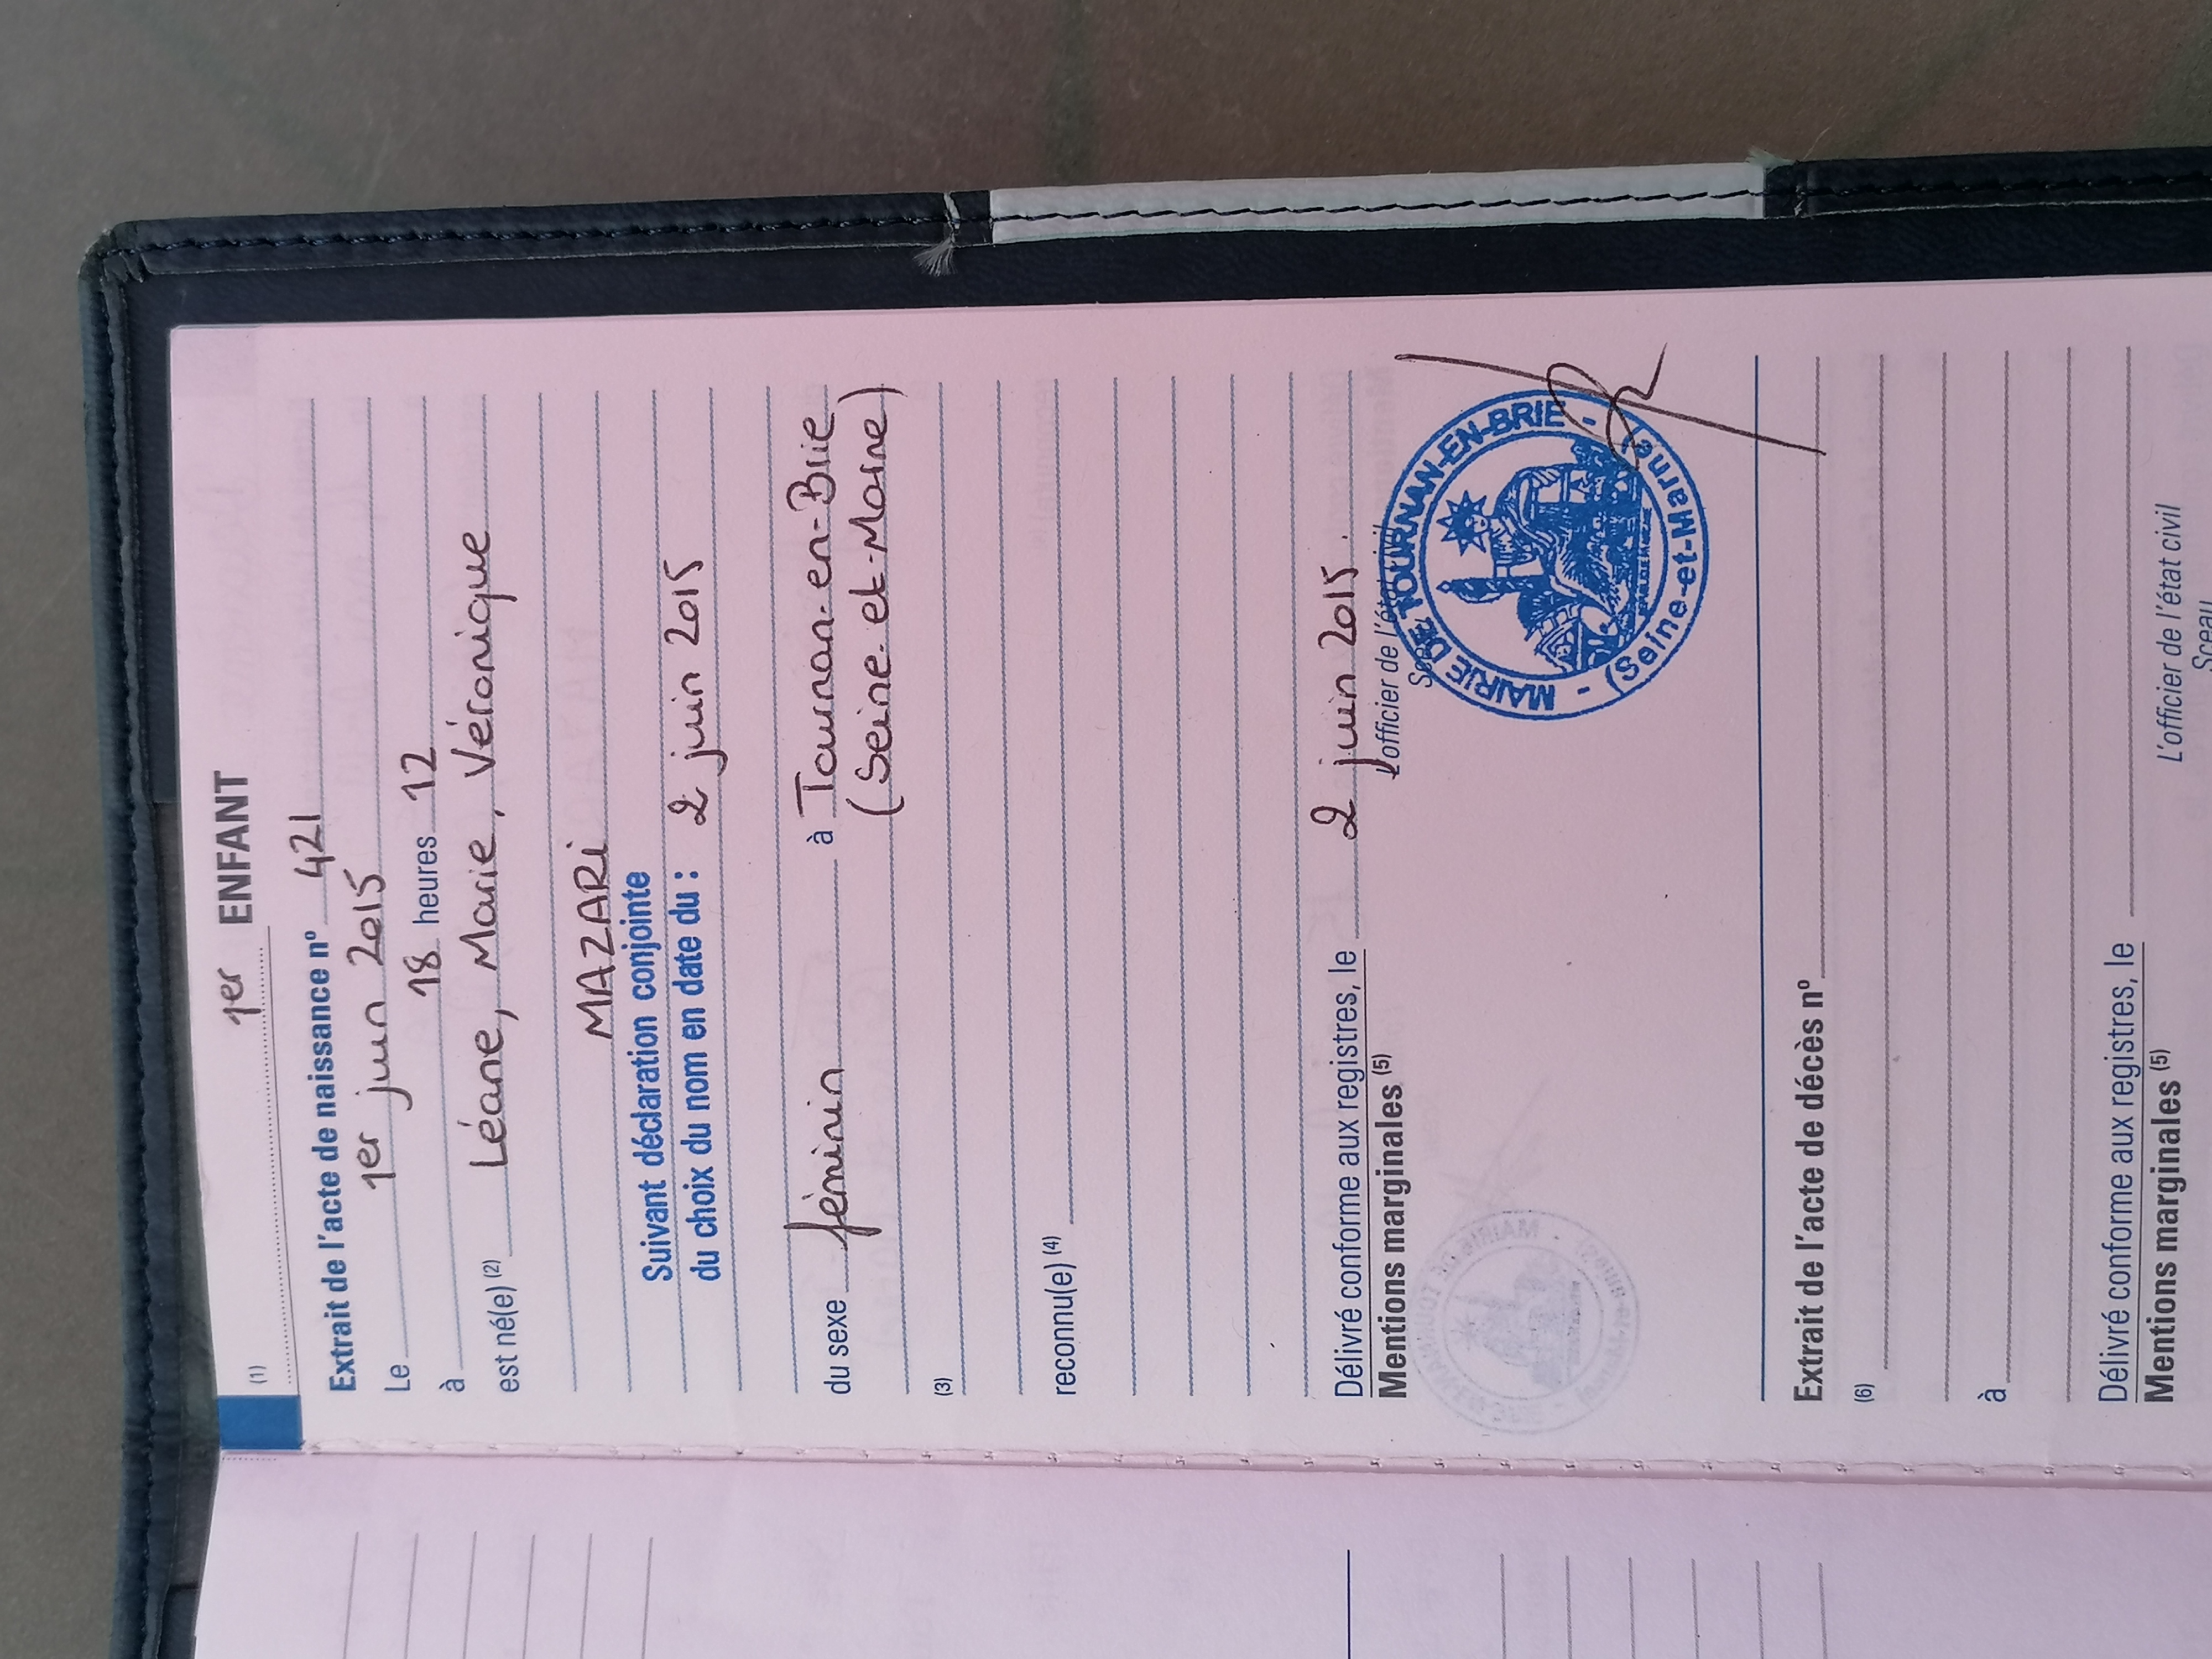 (1) 1er ENFANT
Extrait de l'acte de naissance nº 421
Le 1er juin 2015
à 18 heures 12
est né(e) (2) Léane, Marie, Véronique
MAZARi
Suivant déclaration conjointe
du choix du nom en date du : 2 juin 2015
du sexe féminin à Tournan-en-Brie
(Seine-et-Marne)
(3)
reconnu(e) (4)
Délivré conforme aux registres, le 2 juin 2015.
Mentions marginales (5)
L'officier de l'état civil
Sceau
MAIRIE DE TOURNAN-EN-BRIE -
- (Seine-et-Marne)
Extrait de l'acte de décès nº
(6)
à
Délivré conforme aux registres, le
Mentions marginales (5)
L'officier de l'état civil
Sceau